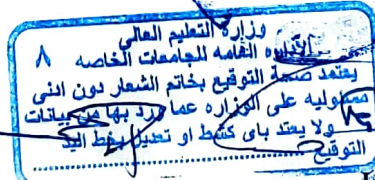 وزارة التعليم العالي
الإداره العامه للجامعات الخاصه ٨
يعتمد صحة التوقيع بخاتم الشعار دون ادنى
مسئوليه على الوزاره عما ورد بها من بيانات
ولا يعتد باى كشط او تعديل بخط اليد
التوقيع ....................